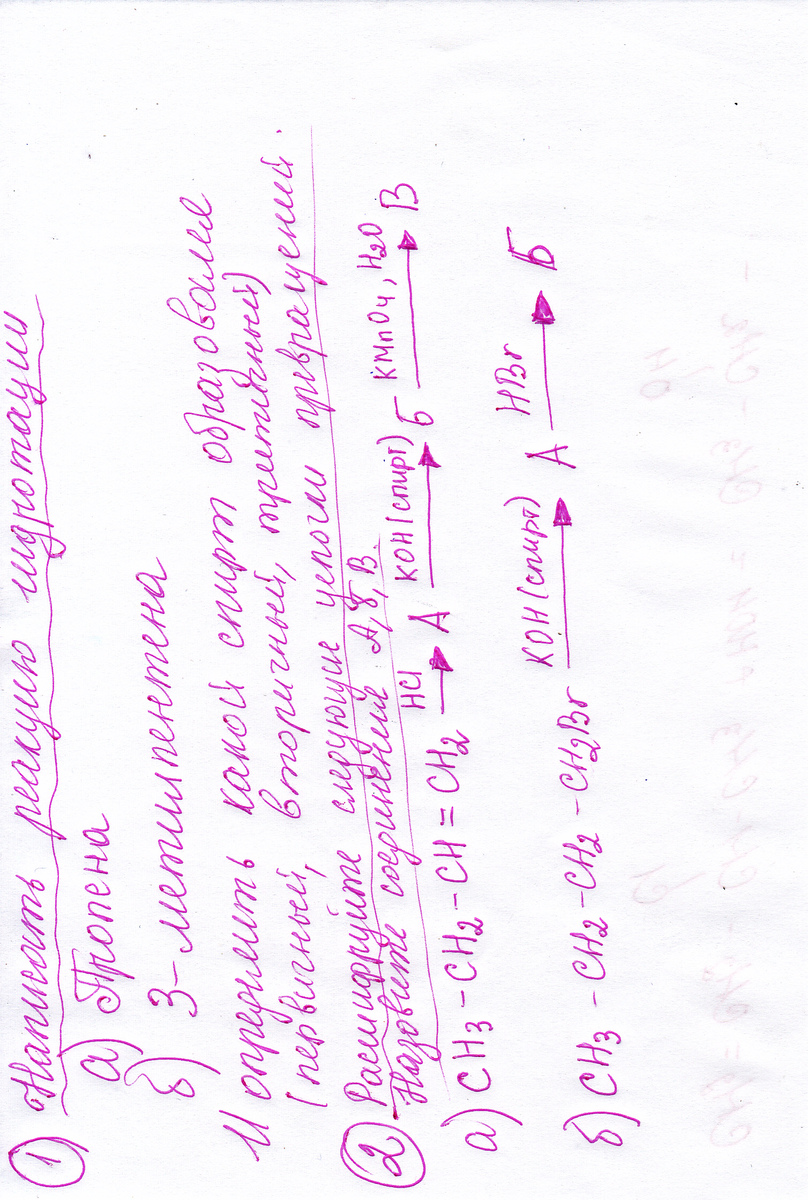 1 Написать реакцию гидротации
а) Пропена
б) 3-метилпентена
и определить какой спирт образовался
(первичный, вторичный, третичный)
2 Расшифруйте следующие цепочки превращений.
Назовите соединения А, Б, В.
а) CH3 - CH2 - CH = CH2 HCl → А KOH(спирт) → Б KMnO4, H2O → В
б) CH3 - CH2 - CH2 - CH2Br KOH(спирт) → А HBr → Б